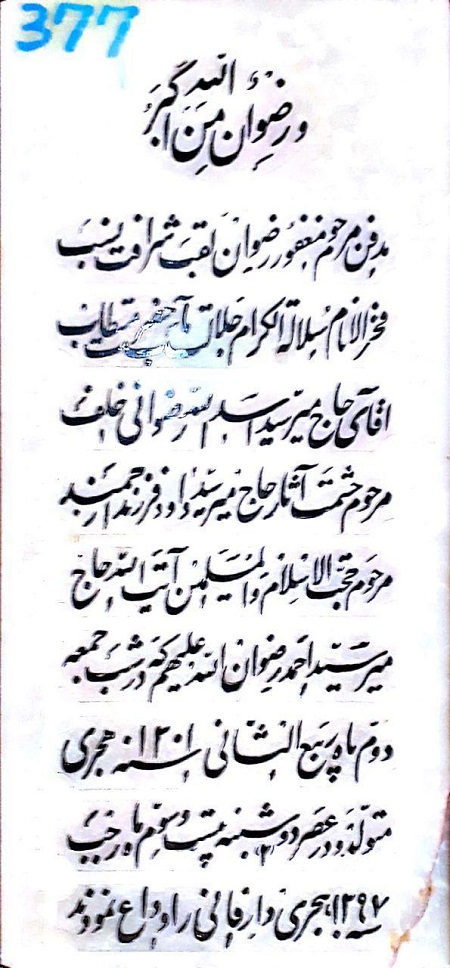 377
و رضوان من الله اکبر
مدفن مرحوم مغفور رضوان لقب شرافت نسب
فخر الانام سلالة الکرام جلالت مآب حضرت مستطاب
آقای حاج میر سید اسد الله رضوانی خلف
مرحوم حشمت آثار حاج میر سید داود فرزند ارجمند
مرحوم حجت الاسلام والمسلمین آیت الله حاج
میر سید احمد رضوان الله علیهم که در شب جمعه
دوم ماه ربیع الثانی سنه ۱۳۰۱ هجری
متولد و در عصر دوشنبه بیست و سوم ماه رجب
سنه ۱۳۹۷ هجری دار فانی را وداع نمودند